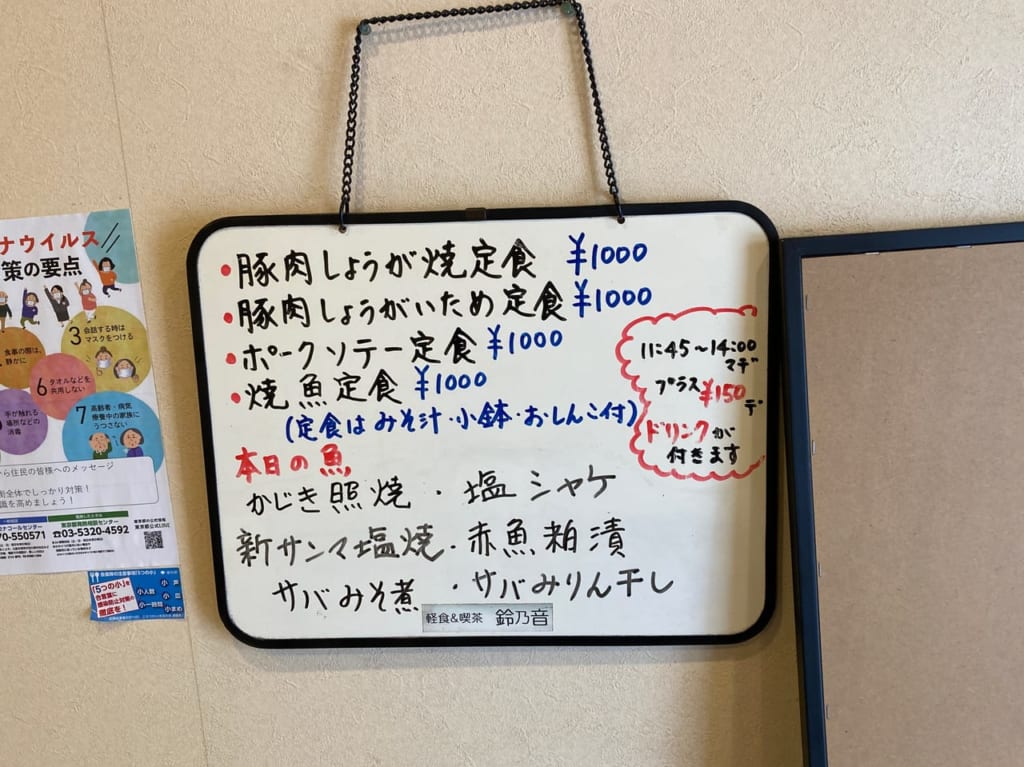 ・豚肉しょうが焼定食 ¥1000
・豚肉しょうがいため定食 ¥1000
・ポークソテー定食 ¥1000
・焼魚定食 ¥1000
(定食はみそ汁・小鉢・おしんこ付)
11:45～14:00
マデ
プラス¥150
デ
ドリンクが
付きます
本日の魚
かじき照焼・塩シャケ
新サンマ塩焼・赤魚粕漬
サバみそ煮・サバみりん干し
軽食&喫茶 鈴乃音
ナウイルス
策の要点
3 会話する時は
マスクをつける
食事の際は、
静かに
6 タオルなどを
共用しない
手が触れる
場所などの
消毒
7 高齢者・病気
療養中の家族に
うつさない
から住民の皆様へのメッセージ
全体でしっかり対策！
識を高めましょう！
ナコールセンター
70-550571
東京都発熱相談センター
☎03-5320-4592
「5つの小」を
合言葉に
感染防止対策の
徹底を！
小人数
小一時間
小声
小皿
小まめ